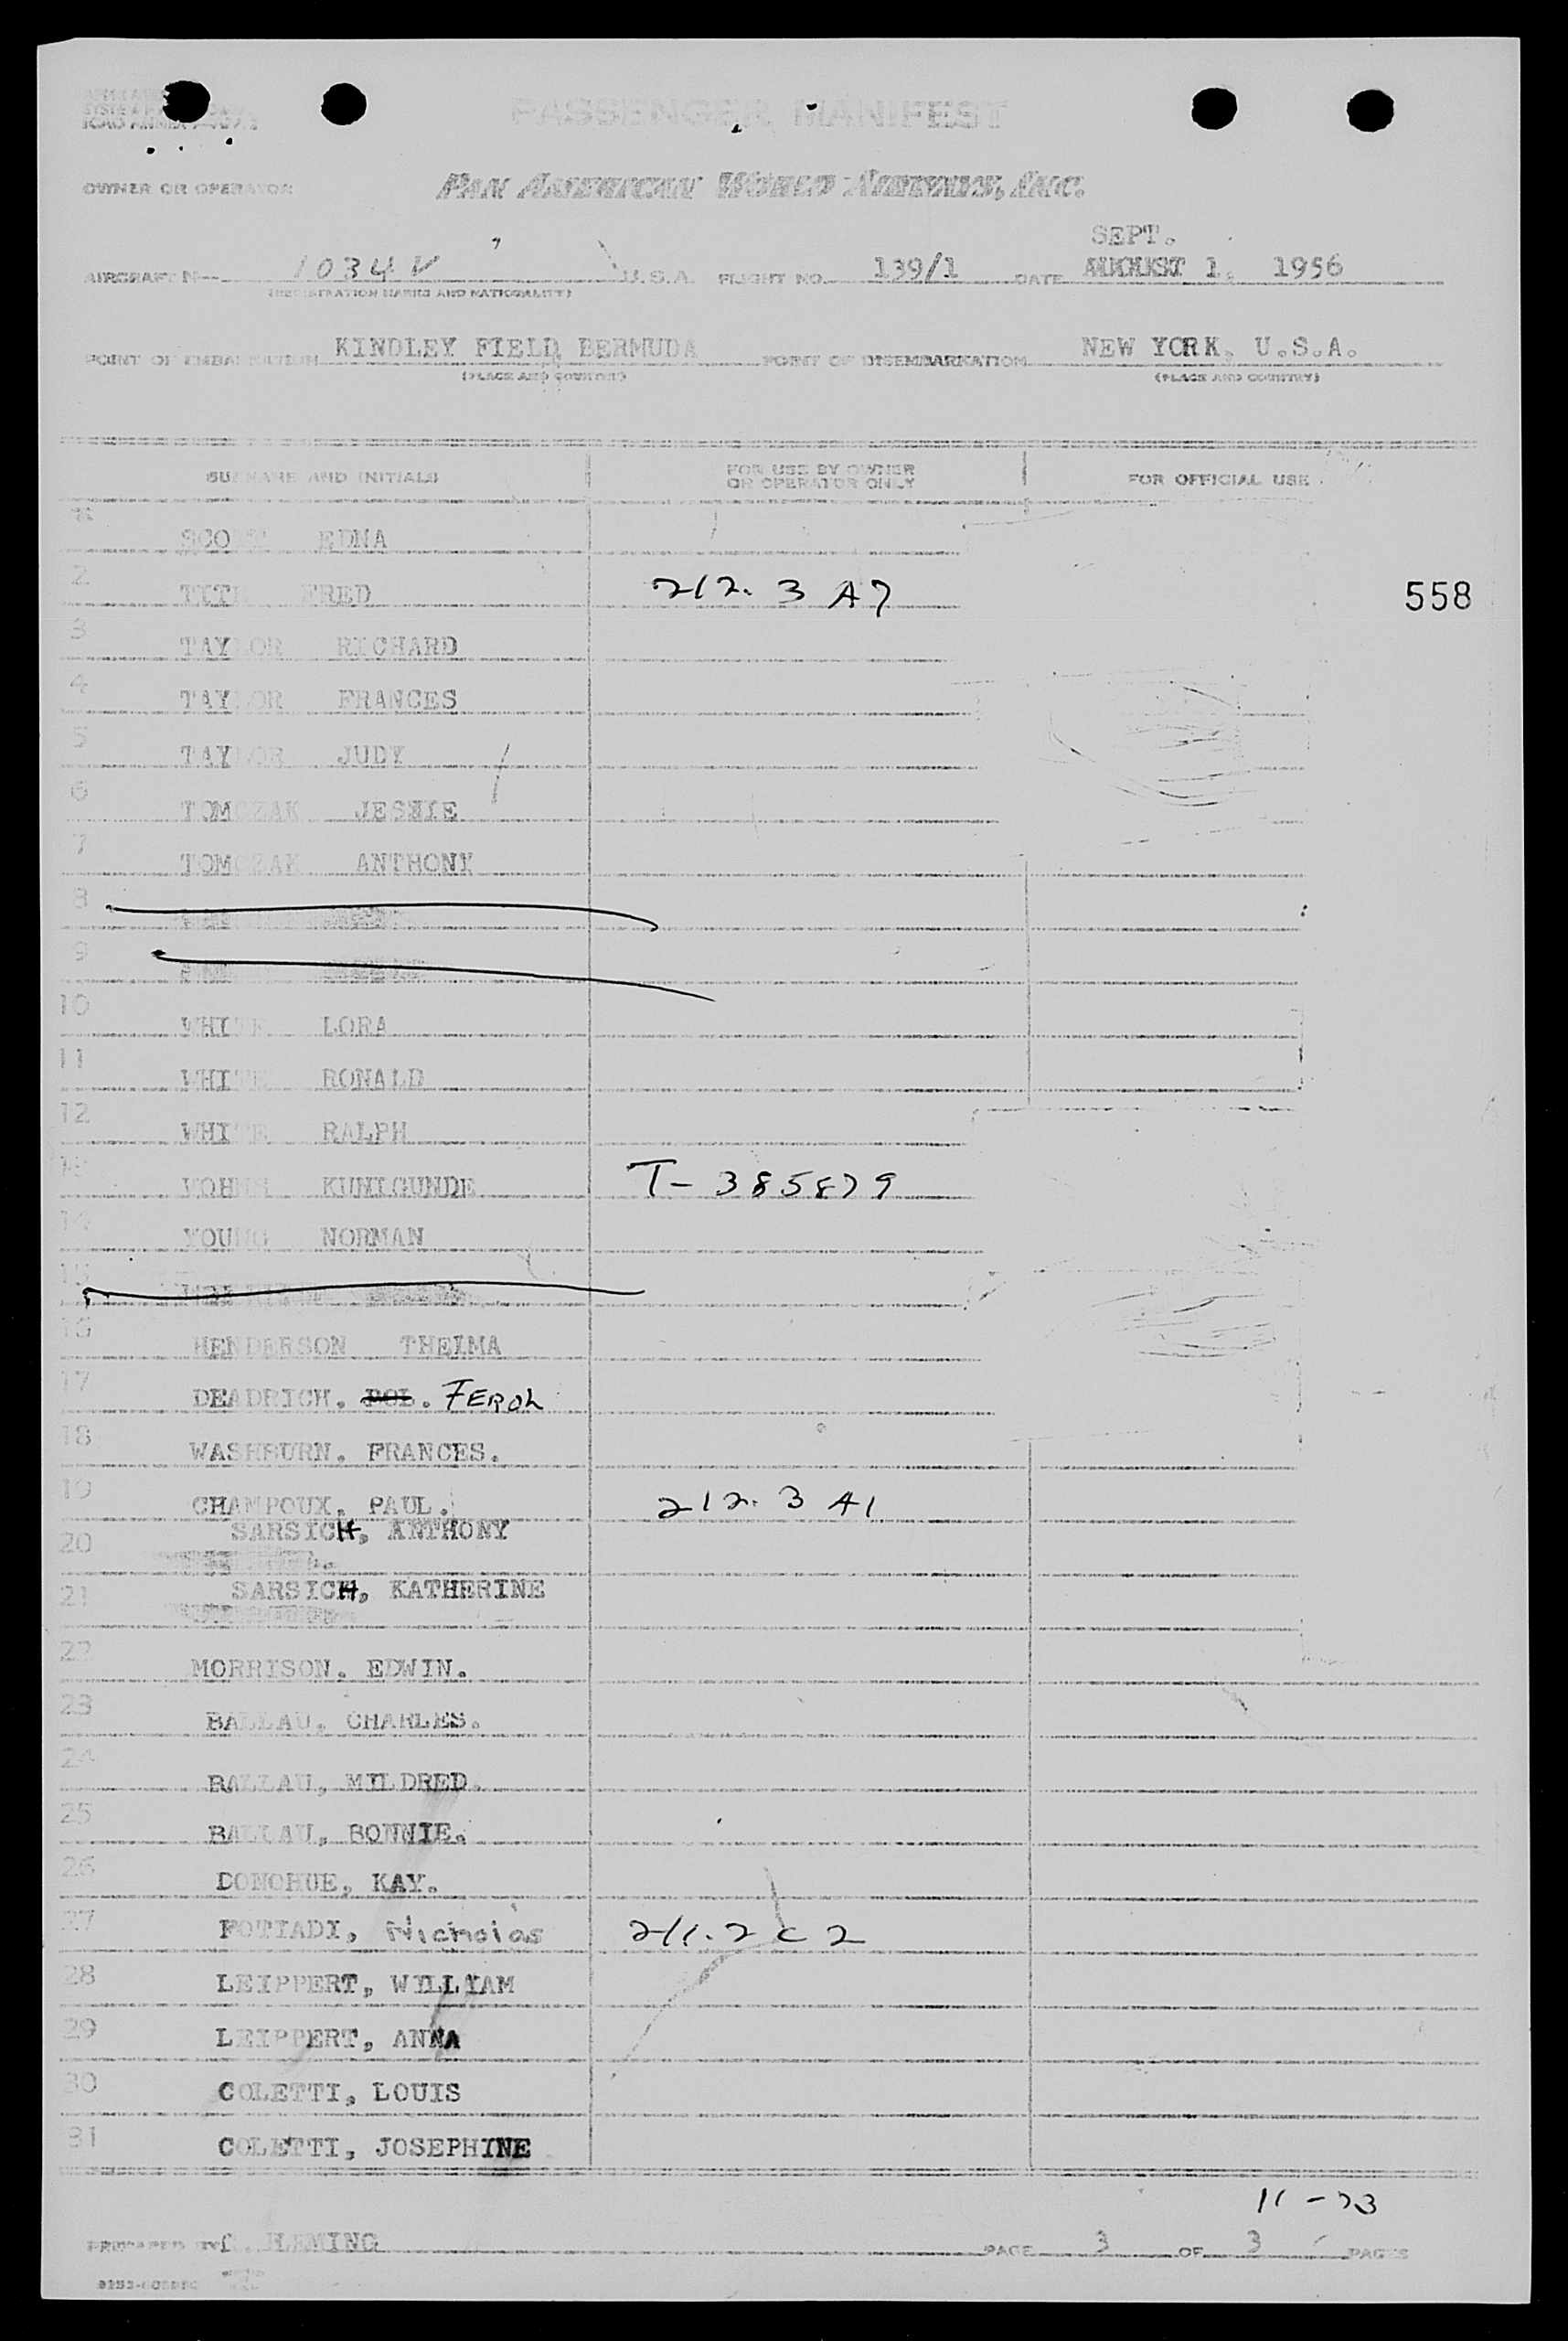 ICAO ANNEX
PASSENGER MANIFEST
OWNER OR OPERATOR PAN AMERICAN WORLD AIRWAYS, INC.
SEPT.
AIRCRAFT N-- 1034V U.S.A. FLIGHT NO. 139/1 DATE AUGUST 1, 1956
(REGISTRATION MARKS AND NATIONALITY)
POINT OF EMBARKATION KINDLEY FIELD, BERMUDA POINT OF DISEMBARKATION NEW YORK, U.S.A.
(PLACE AND COUNTRY) (PLACE AND COUNTRY)
SURNAME AND INITIALS FOR USE BY OWNER OR OPERATOR ONLY FOR OFFICIAL USE
EDNA
2 FRED 212. 3 A7 558
3 TAYLOR RICHARD
4 TAYLOR FRANCES
5 TAYLOR JUDY
6 TOMCZAK JESSIE
7 TOMCZAK ANTHONY
8
9
10 WHITE LORA
11 WHITE RONALD
12 WHITE RALPH
13 KUNIGUNDE T- 385879
14 YOUNG NORMAN
15
16 HENDERSON THELMA
17 DEADRICH. FEROL
18 WASHBURN. FRANCES.
19 CHAMPOUX, PAUL. 212. 3 A1
SARSICH, ANTHONY
20
SARSICH, KATHERINE
21
22 MORRISON. EDWIN.
23 BALLAU, CHARLES.
24 BALLAU, MILDRED.
25 BALLAU, BONNIE.
26 DONOHUE, KAY.
27 FOTIADI, Nicholas 211. 2 C 2
28 LEIPPERT, WILLIAM
29 LEIPPERT, ANNA
30 COLETTI, LOUIS
31 COLETTI, JOSEPHINE
11-73
PREPARED BY FLEMING PAGE 3 OF 3 PAGES